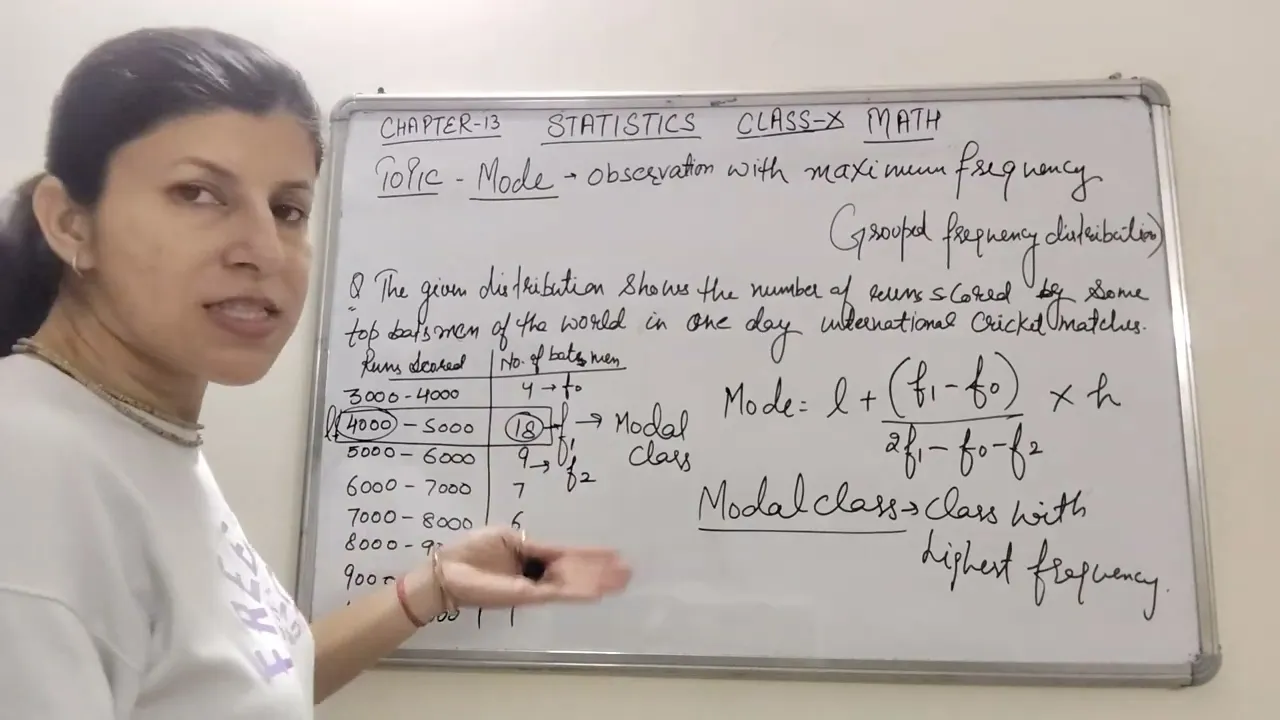 CHAPTER-13 STATISTICS CLASS-X MATH
TOPIC - Mode → observation with maximum frequency
(Grouped frequency distribution)
Q The given distribution shows the number of runs scored by some
top batsmen of the world in one day international cricket matches.
Runs scored No. of batsmen
3000-4000 4 → f0
l 4000 - 5000 18 - f1 → Modal class
5000 - 6000 9 → f2
6000 - 7000 7
7000 - 8000 6
8000 - 9
900
1
Mode = l + (f1 - f0) / 2f1 - f0 - f2 × h
Modal class → class with
highest frequency.
FREE